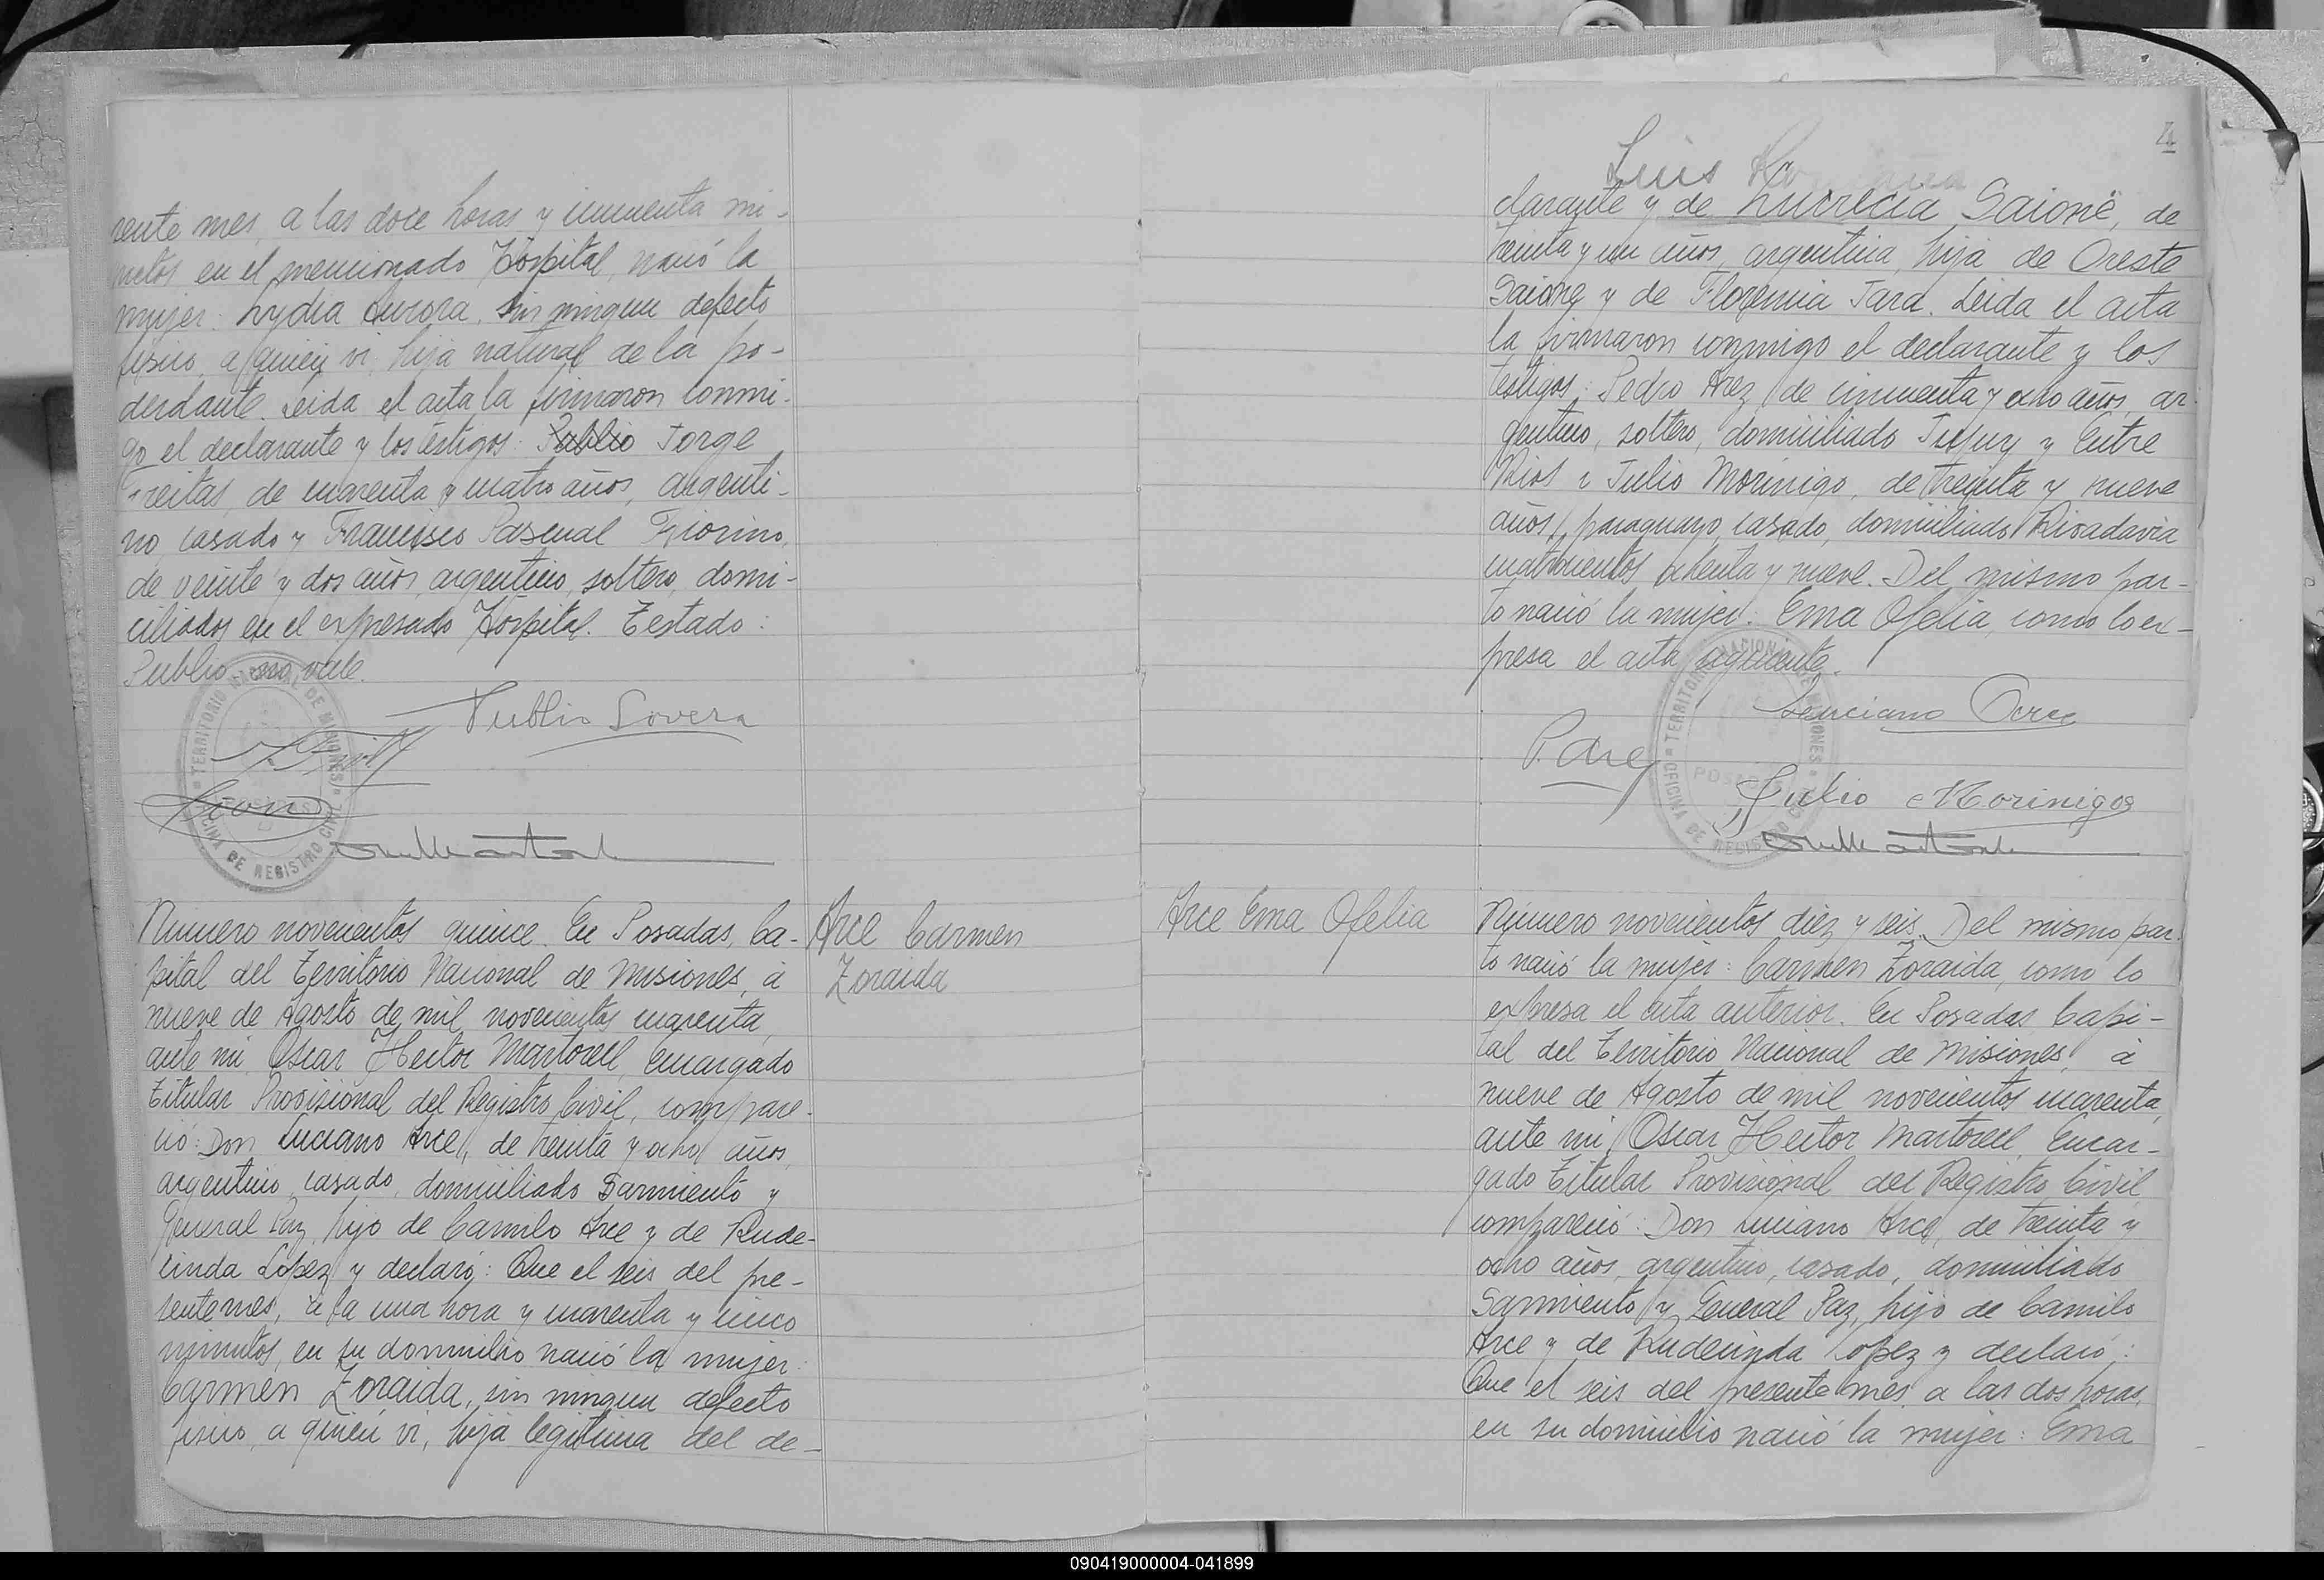 sente mes, a las doce horas y cincuenta mi-
nutos en el mencionado Hospital, nació la
mujer: Lydia Aurora, sin ningun defecto
fisico, a quien vi, hija natural de la po-
derdante. Leida el acta la firmaron conmi-
go el declarante y los testigos: Publio Jorge
Freitas, de cuarenta y cuatro años, argenti-
no casado y Francisco Pascual Fiorino,
de veinte y dos años, argentino, soltero, domi-
ciliados en el expresado Hospital. Testado:
Publio-no vale.
Publio Lovera
TERRITORIO NACIONAL DE MISIONES
OFICINA DE REGISTRO CIVIL
Número novecientos quince. En Posadas, Ca-
pital del Territorio Nacional de Misiones, á
nueve de Agosto de mil novecientos cuarenta,
ante mi, Oscar Hector Martorell, Encargado
Titular Provisional del Registro Civil, compare-
ció: Don Luciano Arce, de treinta y ocho años,
argentino, casado, domiciliado Sarmiento y
General Paz, hijo de Camilo Arce y de Rude-
cinda Lopez y declaró: Que el seis del pre-
sente mes, á la una hora y cuarenta y cinco
minutos, en su domicilio nació la mujer:
Carmen Zoraida, sin ningun defecto
fisico, a quien vi, hija legitima del de-
Arce Carmen
Zoraida
4
Luis
clarante y de Lucrecia Saione, de
treinta y un años, argentina, hija de Oreste
Saione y de Florencia Jara. Leida el acta
la firmaron conmigo el declarante y los
testigos: Pedro Arez, de cincuenta y ocho años, ar-
gentino, soltero, domiciliado Jujuy y Entre
Rios y Julio Morinigo, de treinta y nueve
años, paraguayo, casado, domiciliado Rivadavia
cuatrocientos ochenta y nueve. Del mismo par-
to nació la mujer: Ema Ofelia, como lo ex-
presa el acta siguiente.
Luciano Arce
P. Arez
Julio Morinigo
TERRITORIO NACIONAL DE MISIONES
POSADAS
OFICINA DE REGISTRO CIVIL
Arce Ema Ofelia
Número novecientos diez y seis. Del mismo par-
to nació la mujer: Carmen Zoraida, como lo
expresa el acta anterior. En Posadas Capi-
tal del Territorio Nacional de Misiones, á
nueve de Agosto de mil novecientos cuarenta,
ante mi, Oscar Hector Martorell, Encar-
gado Titular Provisional del Registro Civil,
compareció: Don Luciano Arce, de treinta y
ocho años, argentino, casado, domiciliado
Sarmiento y General Paz, hijo de Camilo
Arce y de Rudecinda Lopez y declaró:
Que el seis del presente mes, a las dos horas,
en su domicilio nació la mujer: Ema
090419000004-041899